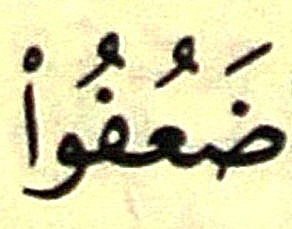 ضَعُفُواْ